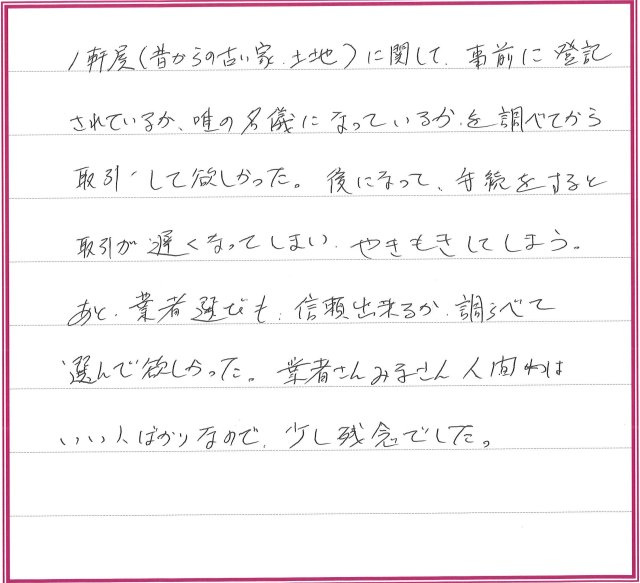 1軒屋(昔からの古い家、土地)に関して、事前に登記
されているか、唯の名儀になっているか、を調べてから
取引して欲しかった。後になって、手続をすると
取引が遅くなってしまい、やきもきしてしまう。
あと、業者選びも、信頼出来るか、調らべて
選んで欲しかった。業者さんみなさん人間的は
いい人ばかりなので、少し残念でした。